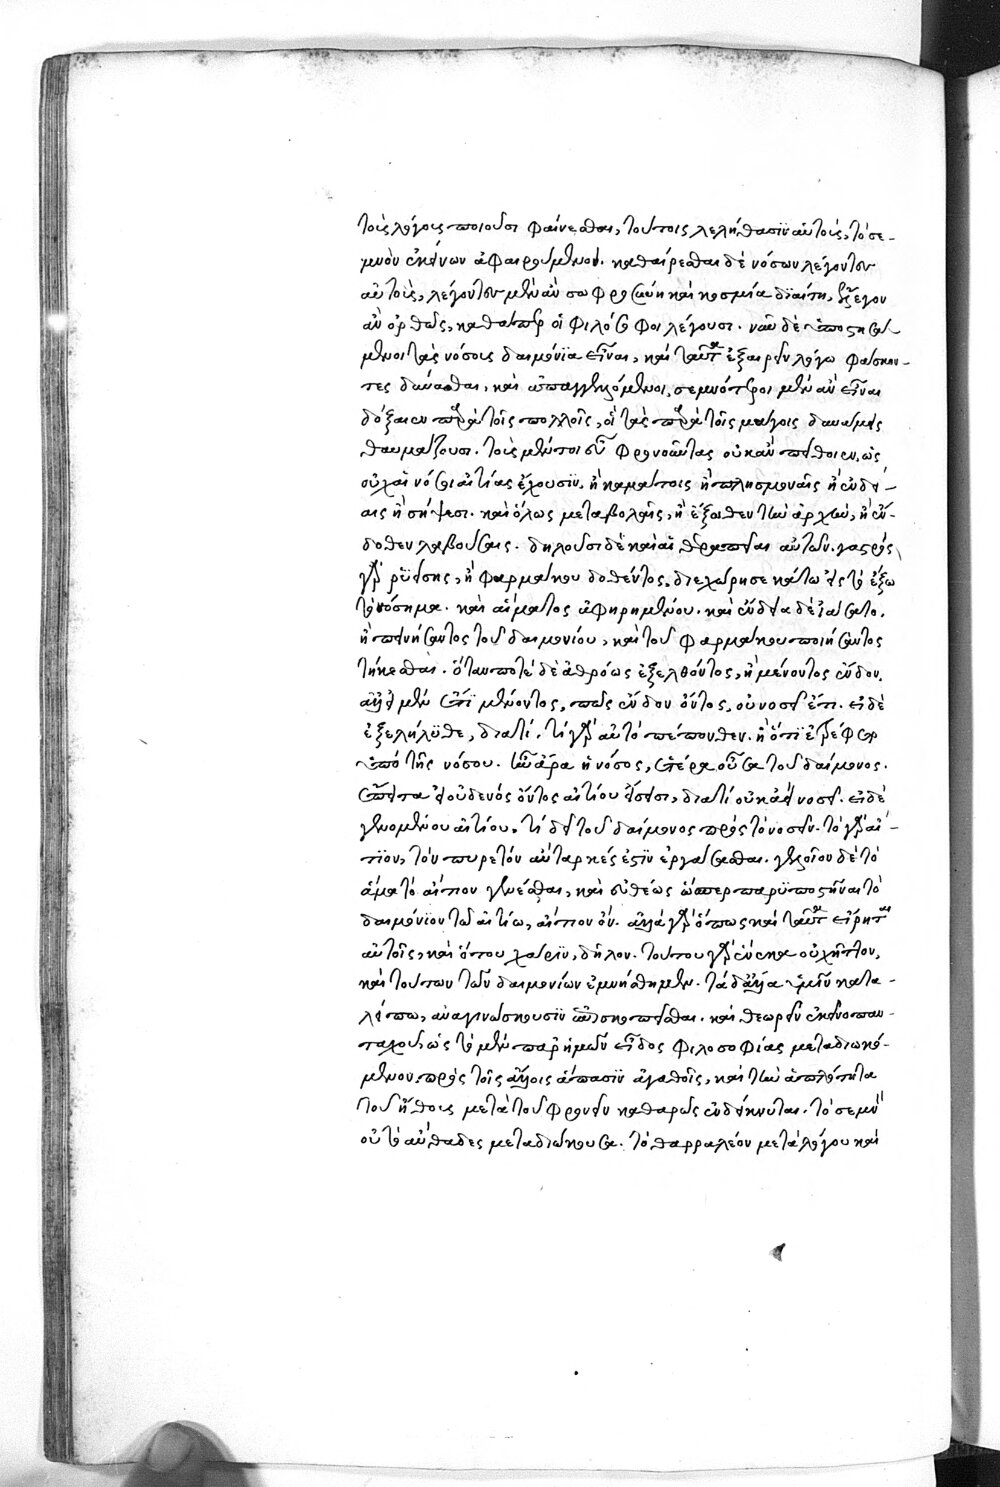 τοῖς λόγοις ποιοῦσι φαίνεσθαι, τούτοις λελήθασιν αὑτοὺς, τὸ σε-
μνὸν ἐκείνων ἀφαιρούμενοι. καθαίρεσθαι δὲ νόσων λέγοντες
αὐτοὺς, λέγοντες μὲν ἂν σωφροσύνῃ καὶ κοσμία διαίτῃ, ἔλεγον
ἂν ὀρθῶς, καθάπερ οἱ φιλόσοφοι λέγουσι. νῦν δὲ ὑποστησά-
μενοι τὰς νόσους δαιμόνια εἶναι, καὶ ταῦτα ἐξαιρεῖν λόγω φάσκον-
τες δύνασθαι, καὶ ἐπαγγελόμενοι, σεμνότεροι μὲν ἂν εἶναι
δόξαιεν παρὰ τοῖς πολλοῖς, οἳ τὰς παρὰ τοῖς μάγοις δυνάμεις
θαυμάζουσι. τοὺς μέντοι εὖ φρονοῦντας οὐκ ἂν πείθοιεν, ὡς
οὐχ αἱ νόσοι αἰτίας ἔχουσιν, ἢ καμάτοις ἢ πλησμοναῖς ἢ ἐνδεί-
αις ἢ σήψεσι. καὶ ὅλως μεταβολαῖς, ἢ ἔξωθεν τὴν ἀρχὴν, ἢ ἔν-
δοθεν λαβούσαις. δηλοῦσι δὲ καὶ αἱ θεραπεῖαι αὐτῶν. γαστρὸς
γὰρ ῥυείσης, ἢ φαρμάκου δοθέντος, διεχώρησε κάτω εἰς τὸ ἔξω
τὸ νόσημα. καὶ αἵματος ἀφῃρημένου. καὶ ἔνδεια δὲ ἰάσατο.
ἢ πεινήσαντος τοῦ δαιμονίου, καὶ τοῦ φαρμάκου ποιήσαντος
τήκεσθαι. ὁτανποτὲ δὲ ἀθρόως ἐξελθόντος, ἢ μένοντος ἔνδον,
ἀλλ' εἰ μὲν ἔτι μένοντος, πῶς ἔνδον ὄντος, οὐ νοσεῖ ἔτι. εἰ δὲ
ἐξελήλυθε, διατί. τί γὰρ αὐτὸ πέπονθεν. ἢ ὅτι ἐτρέφετο
ὑπὸ τῆς νόσου. ἦν ἄρα ἡ νόσος, ἑτέρα οὖσα τοῦ δαίμονος.
ἔπειτα εἰ οὐδενὸς ὄντος αἰτίου εἴσεισι, διατί οὐκ ἀεὶ νοσεῖ. εἰ δὲ
γενομένου αἰτίου, τί δεῖ τοῦ δαίμονος πρὸς τὸ νοσεῖν. τὸ γὰρ αἴ-
τιον, τὸν πυρετὸν αὔταρκές ἐστιν ἐργάσασθαι. γελοῖον δὲ τὸ
ἅμα τὸ αἴτιον γενέσθαι, καὶ εὐθέως ὥσπερ παρυποστῆναι τὸ
δαιμόνιον τῶ αἰτίω, αἴτιον ὄν. ἀλλὰ γὰρ ὅπως καὶ ταῦτα εἴρηται
αὐτοῖς, καὶ ὅτου χάριν, δῆλον. τούτου γὰρ ἕνεκα οὐχ ἧττον,
καὶ τούτων τῶν δαιμονίων ἐμνήσθημεν. τὰ δ' ἄλλα ὑμῖν κατα-
λείπω, ἀναγινώσκουσιν ἐπισκοπεῖσθαι. καὶ θεωρεῖν ἐκεῖνο παν-
ταχοῦ, ὡς τὸ μὲν παρ' ἡμῶν εἶδος φιλοσοφίας μεταδιωκό-
μενον πρὸς τοῖς ἄλλοις ἅπασιν ἀγαθοῖς, καὶ τὴν ἁπλότητα
τοῦ ἤθους μετὰ τοῦ φρονεῖν καθαρῶς ἐνδείκνυται. τὸ σεμν
οὐ τὸ αὔθαδες μεταδιώκουσα. τὸ θαρραλέον μετὰ λόγου καὶ